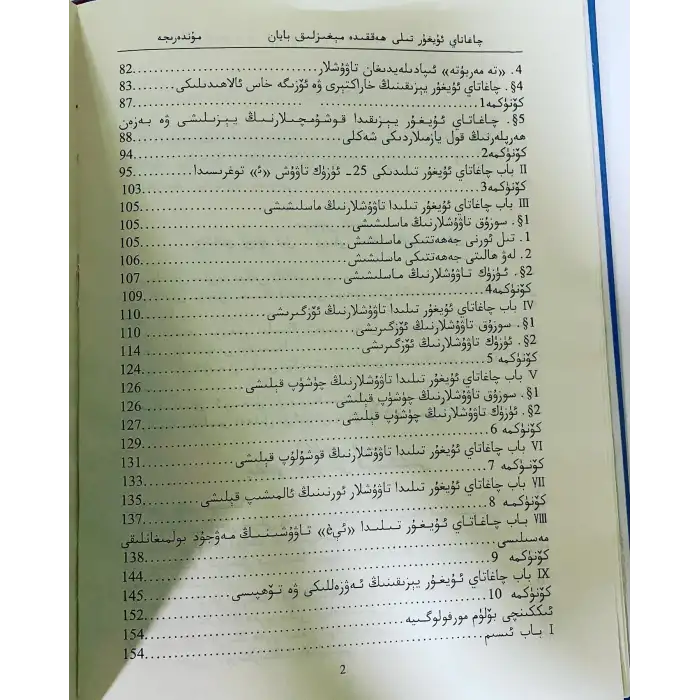 چاغاتاي ئۇيغۇر تىلى ھەققىدە مېغىزلىق بايان مۇندەرىجە
4. «تە مەربۇتە» ئىپادىلەيدىغان تاۋۇشلار..........82
§4. چاغاتاي ئۇيغۇر يېزىقىنىڭ خاراكتېرى ۋە ئۆزىگە خاس ئالاھىدىلىكى..........83
كۆنۈكمە1..........87
§5. چاغاتاي ئۇيغۇر يېزىقىدا قوشۇمچىلارنىڭ يېزىلىشى ۋە بەزەن
ھەرپلەرنىڭ قول يازمىلاردىكى شەكلى..........88
كۆنۈكمە2..........94
II باب چاغاتاي ئۇيغۇر تىلىدىكى 25- ئۈزۈك تاۋۇش «ء» توغرىسىدا..........95
كۆنۈكمە3..........103
III باب چاغاتاي ئۇيغۇر تىلىدا تاۋۇشلارنىڭ ماسلىشىشى..........105
§1. سوزۇق تاۋۇشلارنىڭ ماسلىشىشى..........105
1. تىل ئورنى جەھەتتىكى ماسلىشىش..........105
2. لەۋ ھالىتى جەھەتتىكى ماسلىشىش..........106
§2. ئۈزۈك تاۋۇشلارنىڭ ماسلىشىشى..........107
كۆنۈكمە4..........109
IV باب چاغاتاي ئۇيغۇر تىلىدا تاۋۇشلارنىڭ ئۆزگىرىشى..........110
§1. سوزۇق تاۋۇشلارنىڭ ئۆزگىرىشى..........110
§2. ئۈزۈك تاۋۇشلارنىڭ ئۆزگىرىشى..........114
كۆنۈكمە 5..........124
V باب چاغاتاي ئۇيغۇر تىلىدا تاۋۇشلارنىڭ چۈشۈپ قېلىشى..........126
§1. سوزۇق تاۋۇشلارنىڭ چۈشۈپ قېلىشى..........126
§2. ئۈزۈك تاۋۇشلارنىڭ چۈشۈپ قېلىشى..........127
كۆنۈكمە 6..........129
VI باب چاغاتاي ئۇيغۇر تىلىدا تاۋۇشلارنىڭ قوشۇلۇپ قېلىشى..........131
كۆنۈكمە 7..........133
VII باب چاغاتاي ئۇيغۇر تىلىدا تاۋۇشلار ئورنىنىڭ ئالمىشىپ قېلىشى..........135
كۆنۈكمە 8..........137
VIII باب چاغاتاي ئۇيغۇر تىلىدا «ئې» تاۋۇشىنىڭ مەۋجۇد بولمىغانلىقى
مەسىلىسى..........138
كۆنۈكمە 9..........144
IX باب چاغاتاي ئۇيغۇر يېزىقىنىڭ ئەۋزەللىكى ۋە تۆھپىسى..........145
كۆنۈكمە 10..........152
ئىككىنچى بۆلۈم مورفولوگىيە..........154
I باب ئىسىم..........154
2